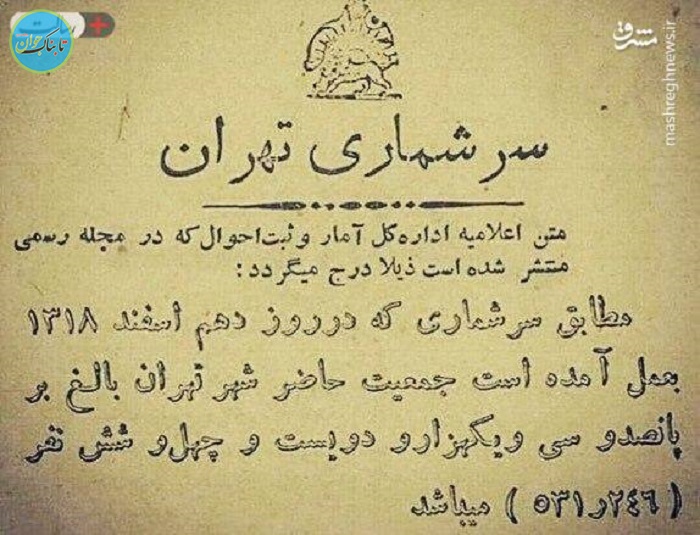 رسالت
تابناک جوان
مشرق
mashreghnews.ir
سرشماری تهران
متن اعلامیه اداره کل آمار و ثبت احوال که در مجله رسمی
منتشر شده است ذیلا درج میگردد:
مطابق سرشماری که در روز دهم اسفند ۱۳۱۸
بعمل آمده است جمعیت حاضر شهر تهران بالغ بر
پانصدو سی ویکهزارو دویست و چهل و شش نفر
(۵۳۱ر۲۴۶) میباشد